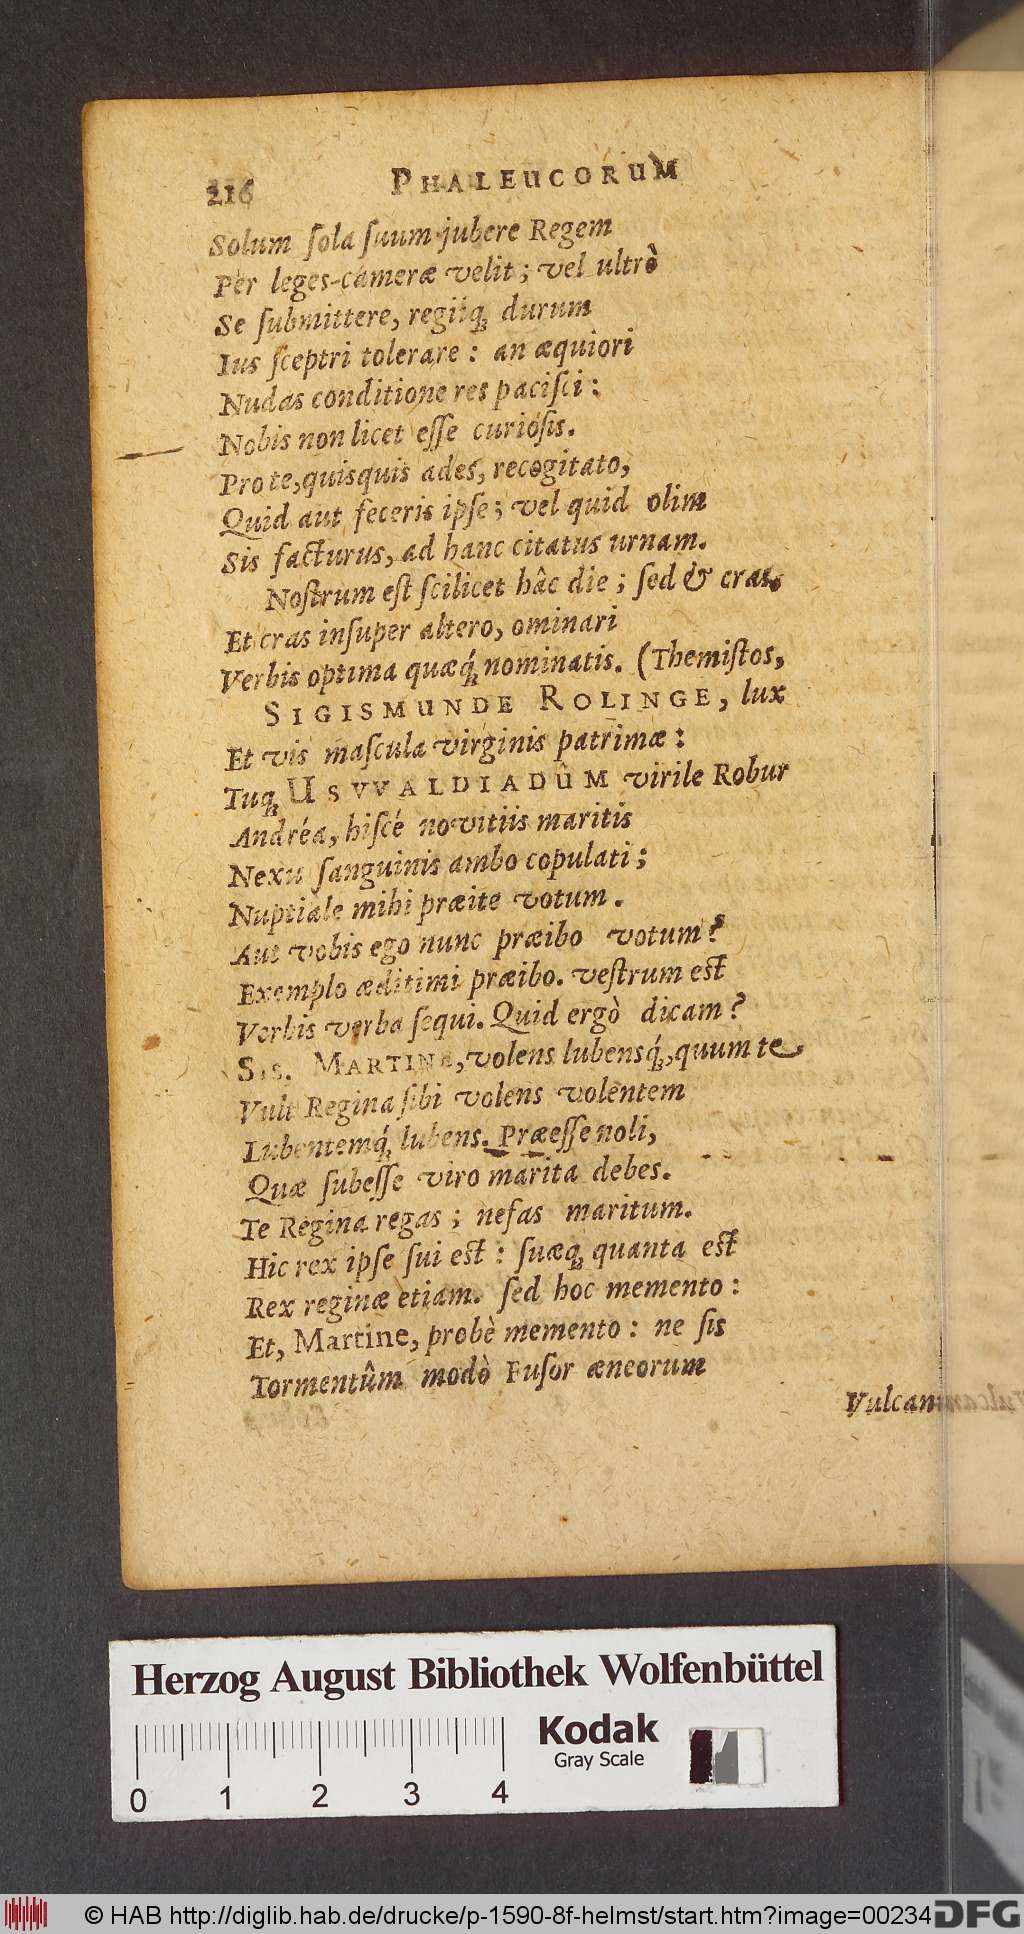 216 PHALEUCORUM
Solum ſola ſuum jubere Regem
Per leges-cameræ velit; vel ultrò
Se ſubmittere, regiiq́ durum
Ius ſceptri tolerare: an æquiori
Nudas conditione res paciſci:
Nobis non licet eſſe curioſis.
Pro te, quisquis ades, recogitato,
Quid aut feceris ipſe; vel quid olim
Sis facturus, ad hanc citatus urnam.
Noſtrum eſt ſcilicet hâc die; ſed & cras,
Et cras inſuper altero, ominari
Verbis optima quæq́ nominatis. (Themiſtos,
SIGISMUNDE ROLINGE, lux
Et vis maſcula virginis patrimæ:
Tuq́ USVVALDIADÛM virile Robur
Andréa, hiſcé novitiis maritis
Nexu ſanguinis ambo copulati;
Nuptiale mihi præite votum.
Aut vobis ego nunc præibo votum?
Exemplo æditimi præibo. veſtrum eſt
Verbis verba ſequi. Quid ergò dicam?
SIS. MARTINE, volens lubensq́, quum te
Vult Regina ſibi volens volentem
Lubentemq́ lubens. Præeſſe noli,
Quæ ſubeſſe viro marita debes.
Te Regina regas; nefas maritum.
Hic rex ipſe ſui eſt: ſuæq́ quanta eſt
Rex reginæ etiam. ſed hoc memento:
Et, Martine, probè memento: ne ſis
Tormentûm modò Fuſor æneorum
Vulcanus
Herzog August Bibliothek Wolfenbüttel
Kodak
Gray Scale
0 1 2 3 4
© HAB http://diglib.hab.de/drucke/p-1590-8f-helmst/start.htm?image=00234
DFG